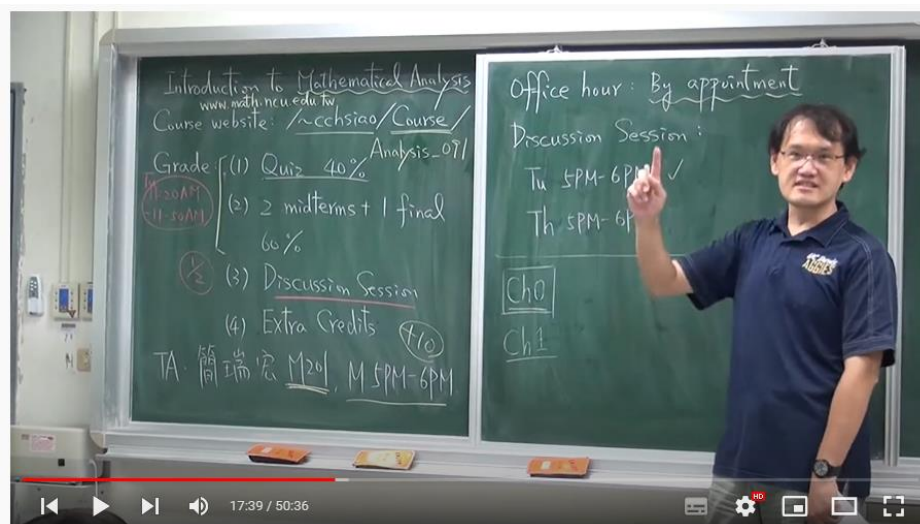 Introduction to Mathematical Analysis
www.math.ncu.edu.tw
Course website: /~cchsiao/Course/
Analysis_091
Grade: (1) Quiz 40%
11:20AM
-11:50AM
(2) 2 midterms + 1 final
60%
1/2 (3) Discussion Session
(4) Extra Credits +10
TA: 簡瑞宏 M201, M 5PM-6PM
Office hour: By appointment
Discussion Session:
Tu 5PM-6PM ✓
Th 5PM-6P
Ch0
Ch1
AGGIES
17:39 / 50:36
HD